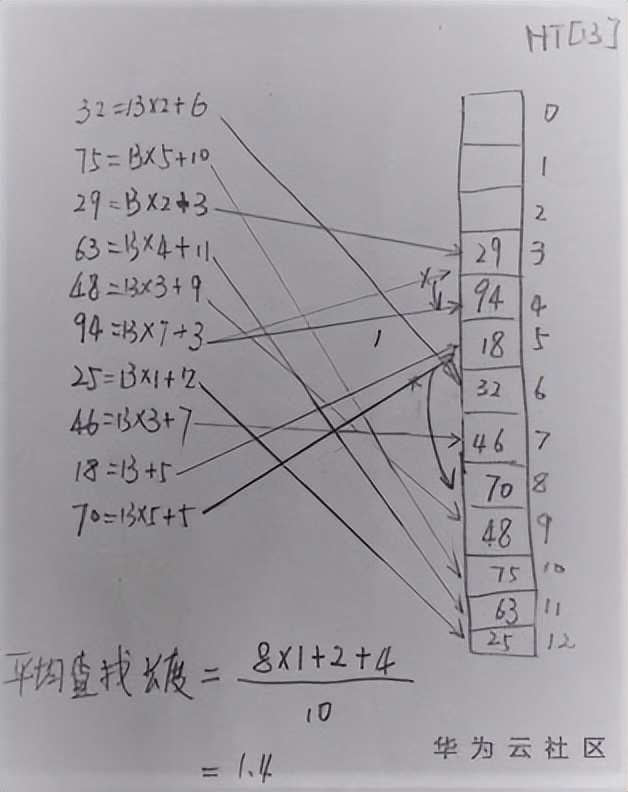 HT[13]
32=13×2+6
75=13×5+10
29=13×2+3
63=13×4+11
48=13×3+9
94=13×7+3
25=13×1+12
46=13×3+7
18=13+5
70=13×5+5
0
1
2
29 3
94 4
18 5
32 6
46 7
70 8
48 9
75 10
63 11
25 12
平均查找长度 = 8×1+2+4
10
= 1.4
华为云社区